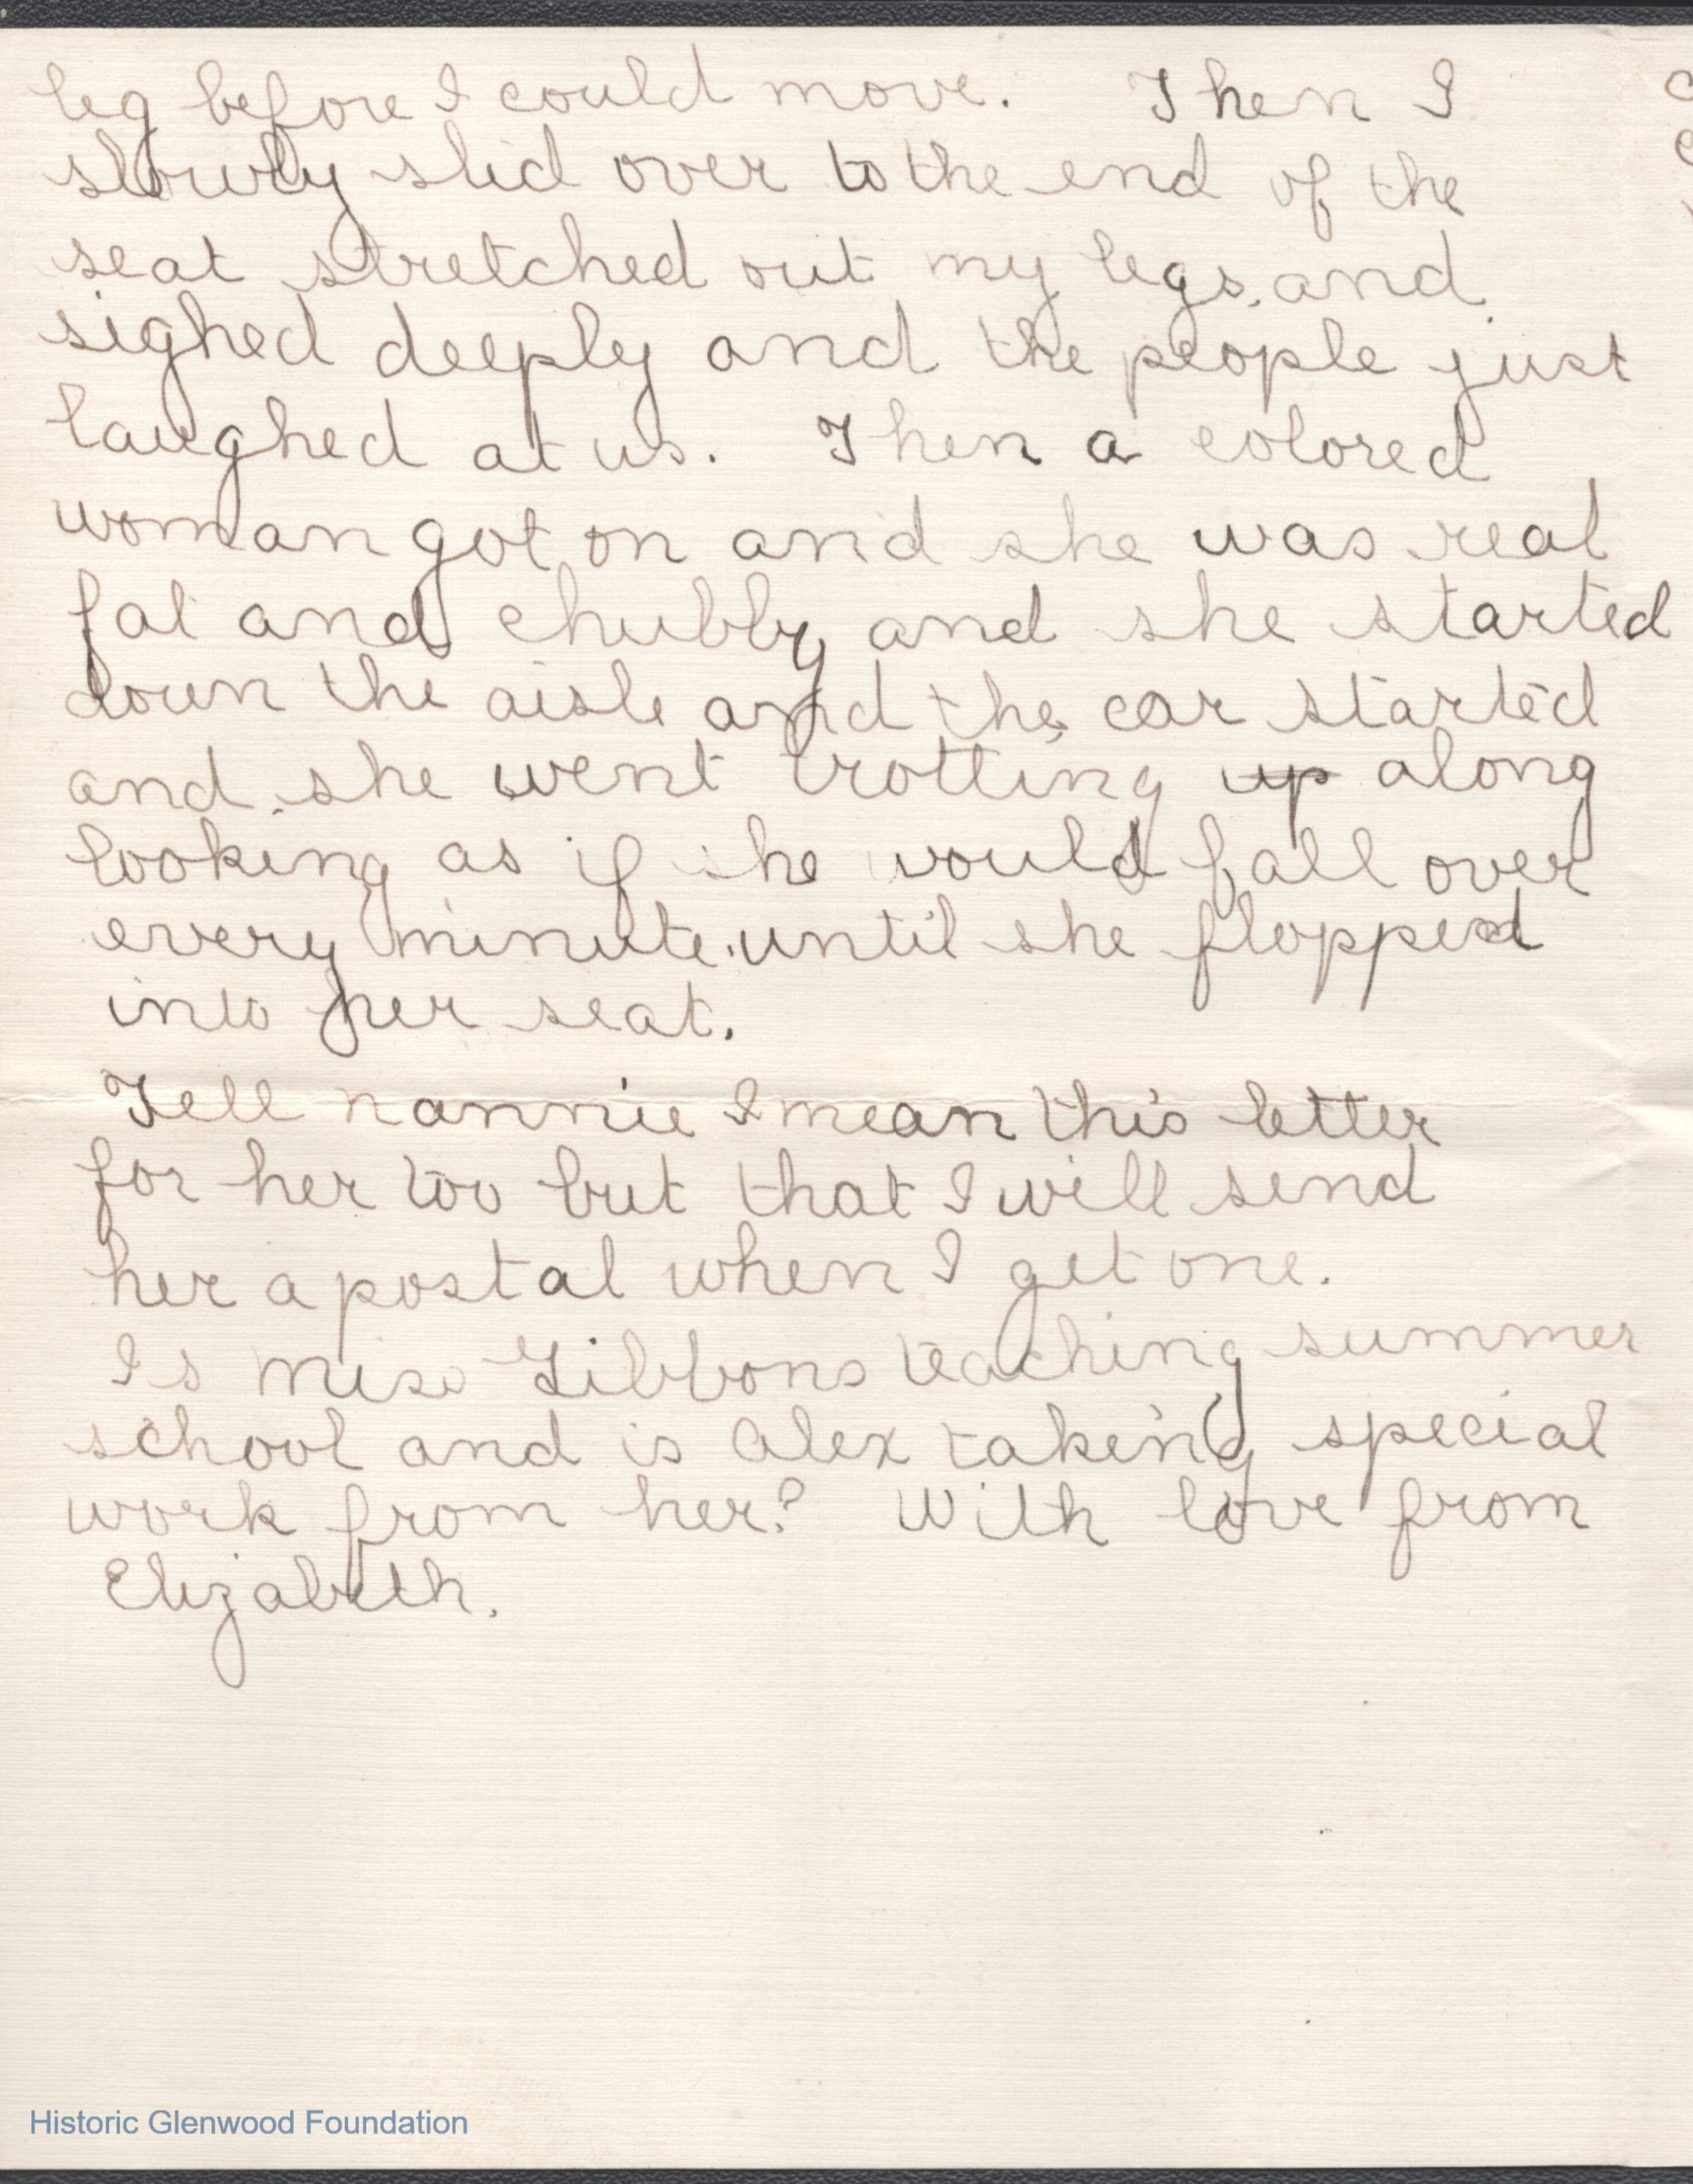 leg before I could move. Then I
slowly slid over to the end of the
seat stretched out my legs, and
sighed deeply and the people just
laughed at us. Then a colored
woman got on and she was real
fat and chubby and she started
down the aisle and the car started
and she went trotting up along
looking as if she would fall over
every minute until she flopped
into her seat.
Tell nannie I mean this letter
for her too but that I will send
her a postal when I get one.
Is miss Gibbons teaching summer
school and is Alex taking special
work from her? With love from
Elizabeth.
Historic Glenwood Foundation